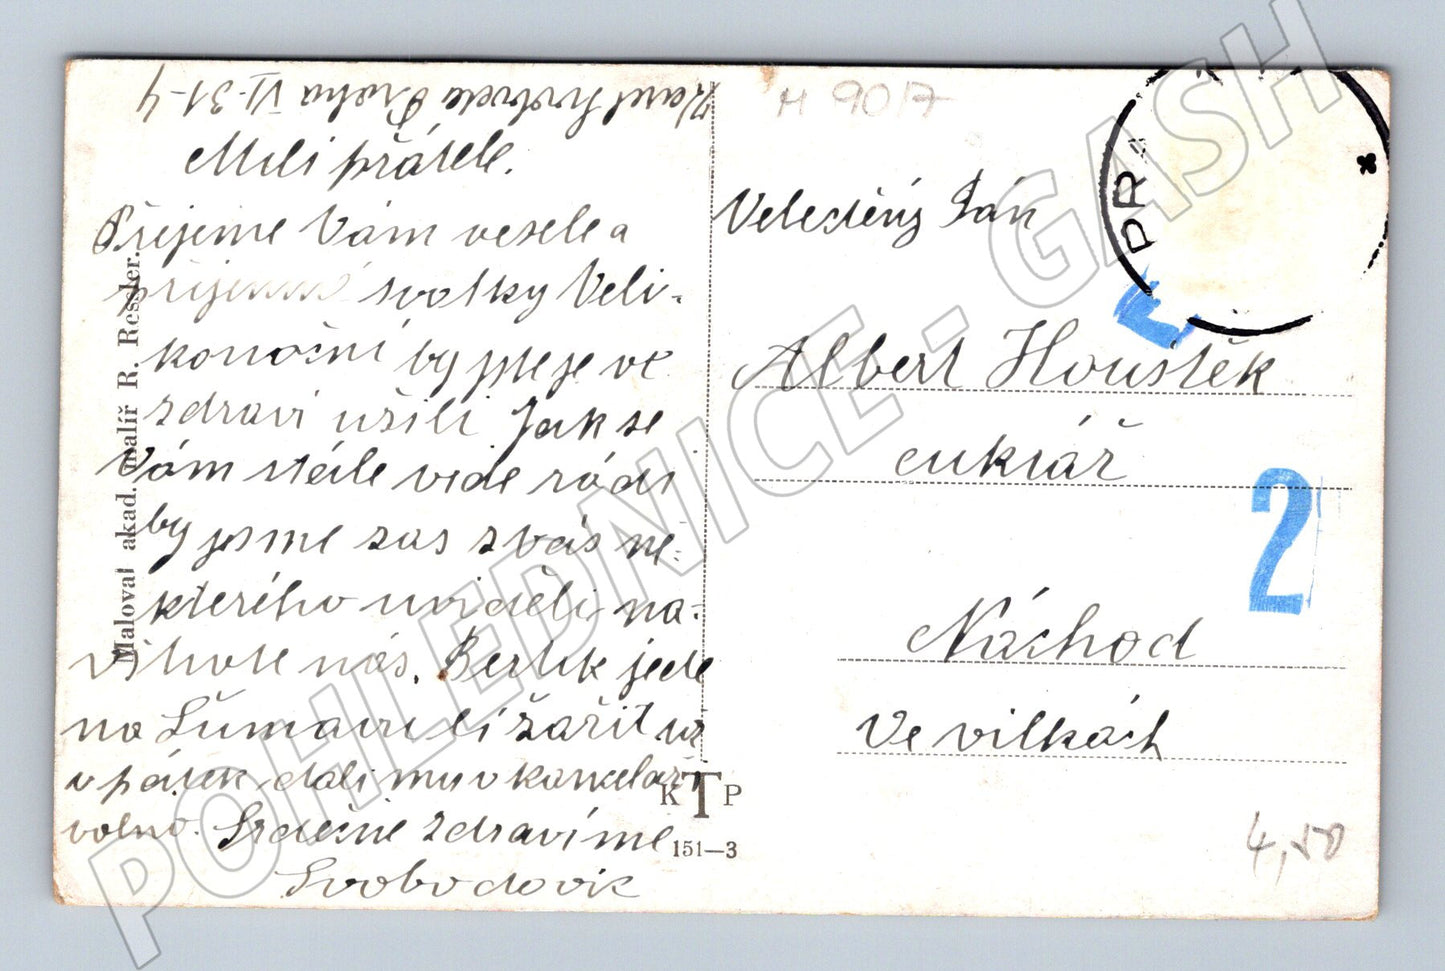 Karel Svoboda Praha VI-31-4
Milí přátelé.
Přejeme Vám veselé a
příjemné svátky Veli-
konoční by jste je ve
zdraví užili Jak se
Vám stále vede rádi
by jsme zas z vás ně-
kterého uviděli na-
vštivte nás. Bertík jede
na Šumavu lížařit už
v pátek dali mu v kanceláři
volno. Srdečně zdravíme
Svobodovic
Maloval akad. malíř R. Ressler.
K T P
151—3
M 9017
PR
Velectěný Pán
Albert Houštěk
cukrář
Náchod
Ve vilkách
2
4,50
POHLEDNICE - GASH